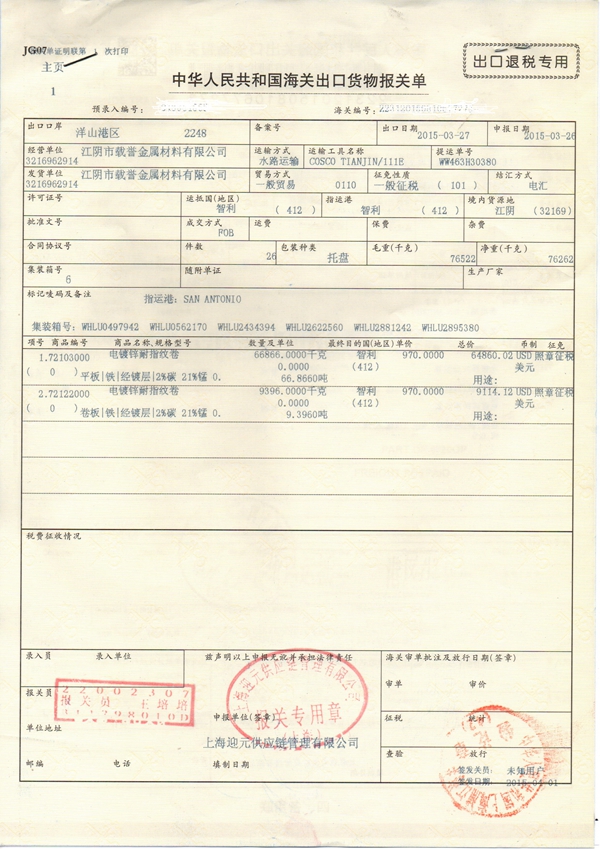 JG07 单证明联第 1 次打印
出口退税专用
主页
1
中华人民共和国海关出口货物报关单
预录入编号:
海关编号:
出口口岸 洋山港区 2248 备案号 出口日期 2015-03-27 申报日期 2015-03-26
经营单位 江阴市载誉金属材料有限公司 运输方式 运输工具名称 提运单号
3216962914 水路运输 COSCO TIANJIN/111E WW463H30380
发货单位 江阴市载誉金属材料有限公司 贸易方式 征免性质 结汇方式
3216962914 一般贸易 0110 一般征税 (101) 电汇
许可证号 运抵国(地区) 指运港 境内货源地
智利 (412) 智利 (412) 江阴 (32169)
批准文号 成交方式 运费 保费 杂费
FOB
合同协议号 件数 包装种类 毛重(千克) 净重(千克)
26 托盘 76522 76262
集装箱号 随附单证 生产厂家
6
标记唛码及备注
指运港: SAN ANTONIO
集装箱号: WHLU0497942 WHLU0562170 WHLU2434394 WHLU2622560 WHLU2881242 WHLU2895380
项号 商品编号 商品名称、规格型号 数量及单位 最终目的国(地区)单价 总价 币制 征免
1.72103000 电镀锌耐指纹卷 66866.0000千克 智利 970.0000 64860.02 USD 照章征税
( 0 ) 0.0000 (412) 美元
平板|铁|经镀层|2%碳 21%锰 0. 66.8660吨 用途:
2.72122000 电镀锌耐指纹卷 9396.0000千克 智利 970.0000 9114.12 USD 照章征税
( 0 ) 0.0000 (412) 美元
卷板|铁|经镀层|2%碳 21%锰 0. 9.3960吨 用途:
税费征收情况
录入员 录入单位 兹声明以上申报无讹并承担法律责任 海关审单批注及放行日期(签章)
审单 审价
报关员
22002307
报关员 王培培
上海迎元供应链管理有限公司
报关专用章
申报单位(签章)
征税 统计
单位地址
上海迎元供应链管理有限公司
查验 放行
邮编 电话 填制日期
签发关员: 未知用户
签发日期: 2015-04-01